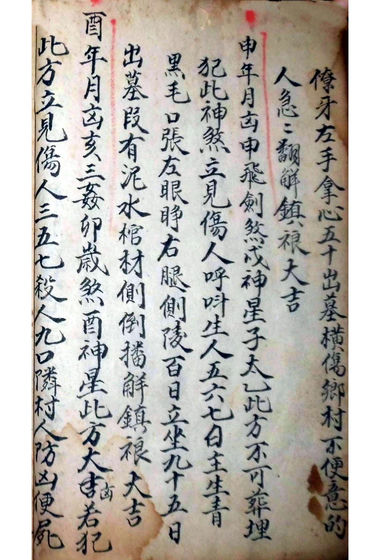 僚牙左手拿心五十出墓橫傷鄉村不便意的
人急〻翻解鎮禳大吉
申年月凶申飛劍煞戊神星子太乙此方不可葬埋
犯此神煞立見傷人呼呌生人五六七日主生青
黑毛口張左眼睜右腿側陵百日立坐九十五日
出墓段有泥水棺材側倒播解鎮禳大吉
酉年月凶亥三姦卯歲煞酉神星此方大吉凶若犯
此方立見傷人三五七殺人九口隣村人防凶便屍